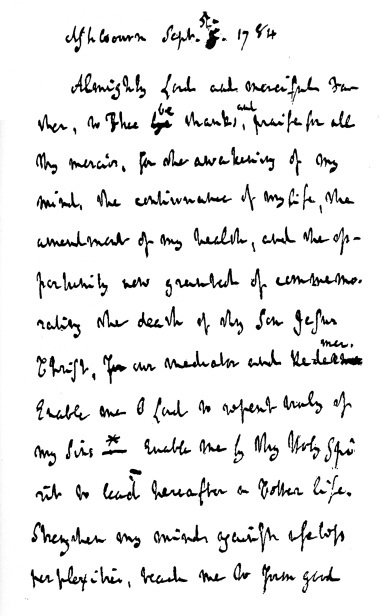 Ashbourn Sept. 5. 1784
Almighty Lord and merciful Fa-
ther, to Thee be thanks, and praise for all
thy mercies, for the awakening of my
mind, the continuance of my life, the
amendment of my health, and the op-
portunity now granted of commemo-
rating the death of thy Son Jesus
Christ, our mediator and Redeemer.
Enable me O Lord to repent truly of
my sins * Enable me by thy Holy Spi
rit to lead hereafter a better life.
Strengthen my mind against useless
perplexities, teach me to form good